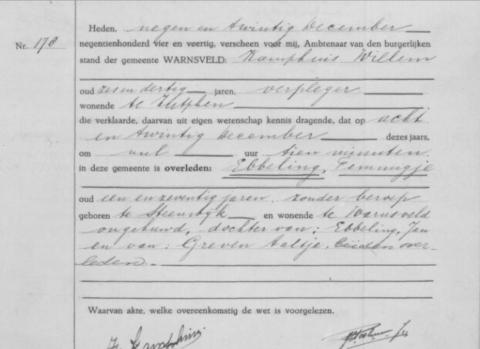 Heden, negen en twintig december
Nr. 178 negentienhonderd vier en veertig, verscheen voor mij, Ambtenaar van den burgerlijken
stand der gemeente WARNSVELD: Kamphuis Willem
oud zes en dertig jaren, verpleger
wonende te Zutphen
die verklaarde, daarvan uit eigen wetenschap kennis dragende, dat op acht
en twintig december dezes jaars,
om nul uur tien minuten
in deze gemeente is overleden: Ebbeling, Femmigje
oud een en zeventig jaren, zonder beroep
geboren te Steenwijk en wonende te Warnsveld
ongehuwd, dochter van: Ebbeling, Jan
en van: Greven Aaltje, beiden over-
leden.
Waarvan akte, welke overeenkomstig de wet is voorgelezen.